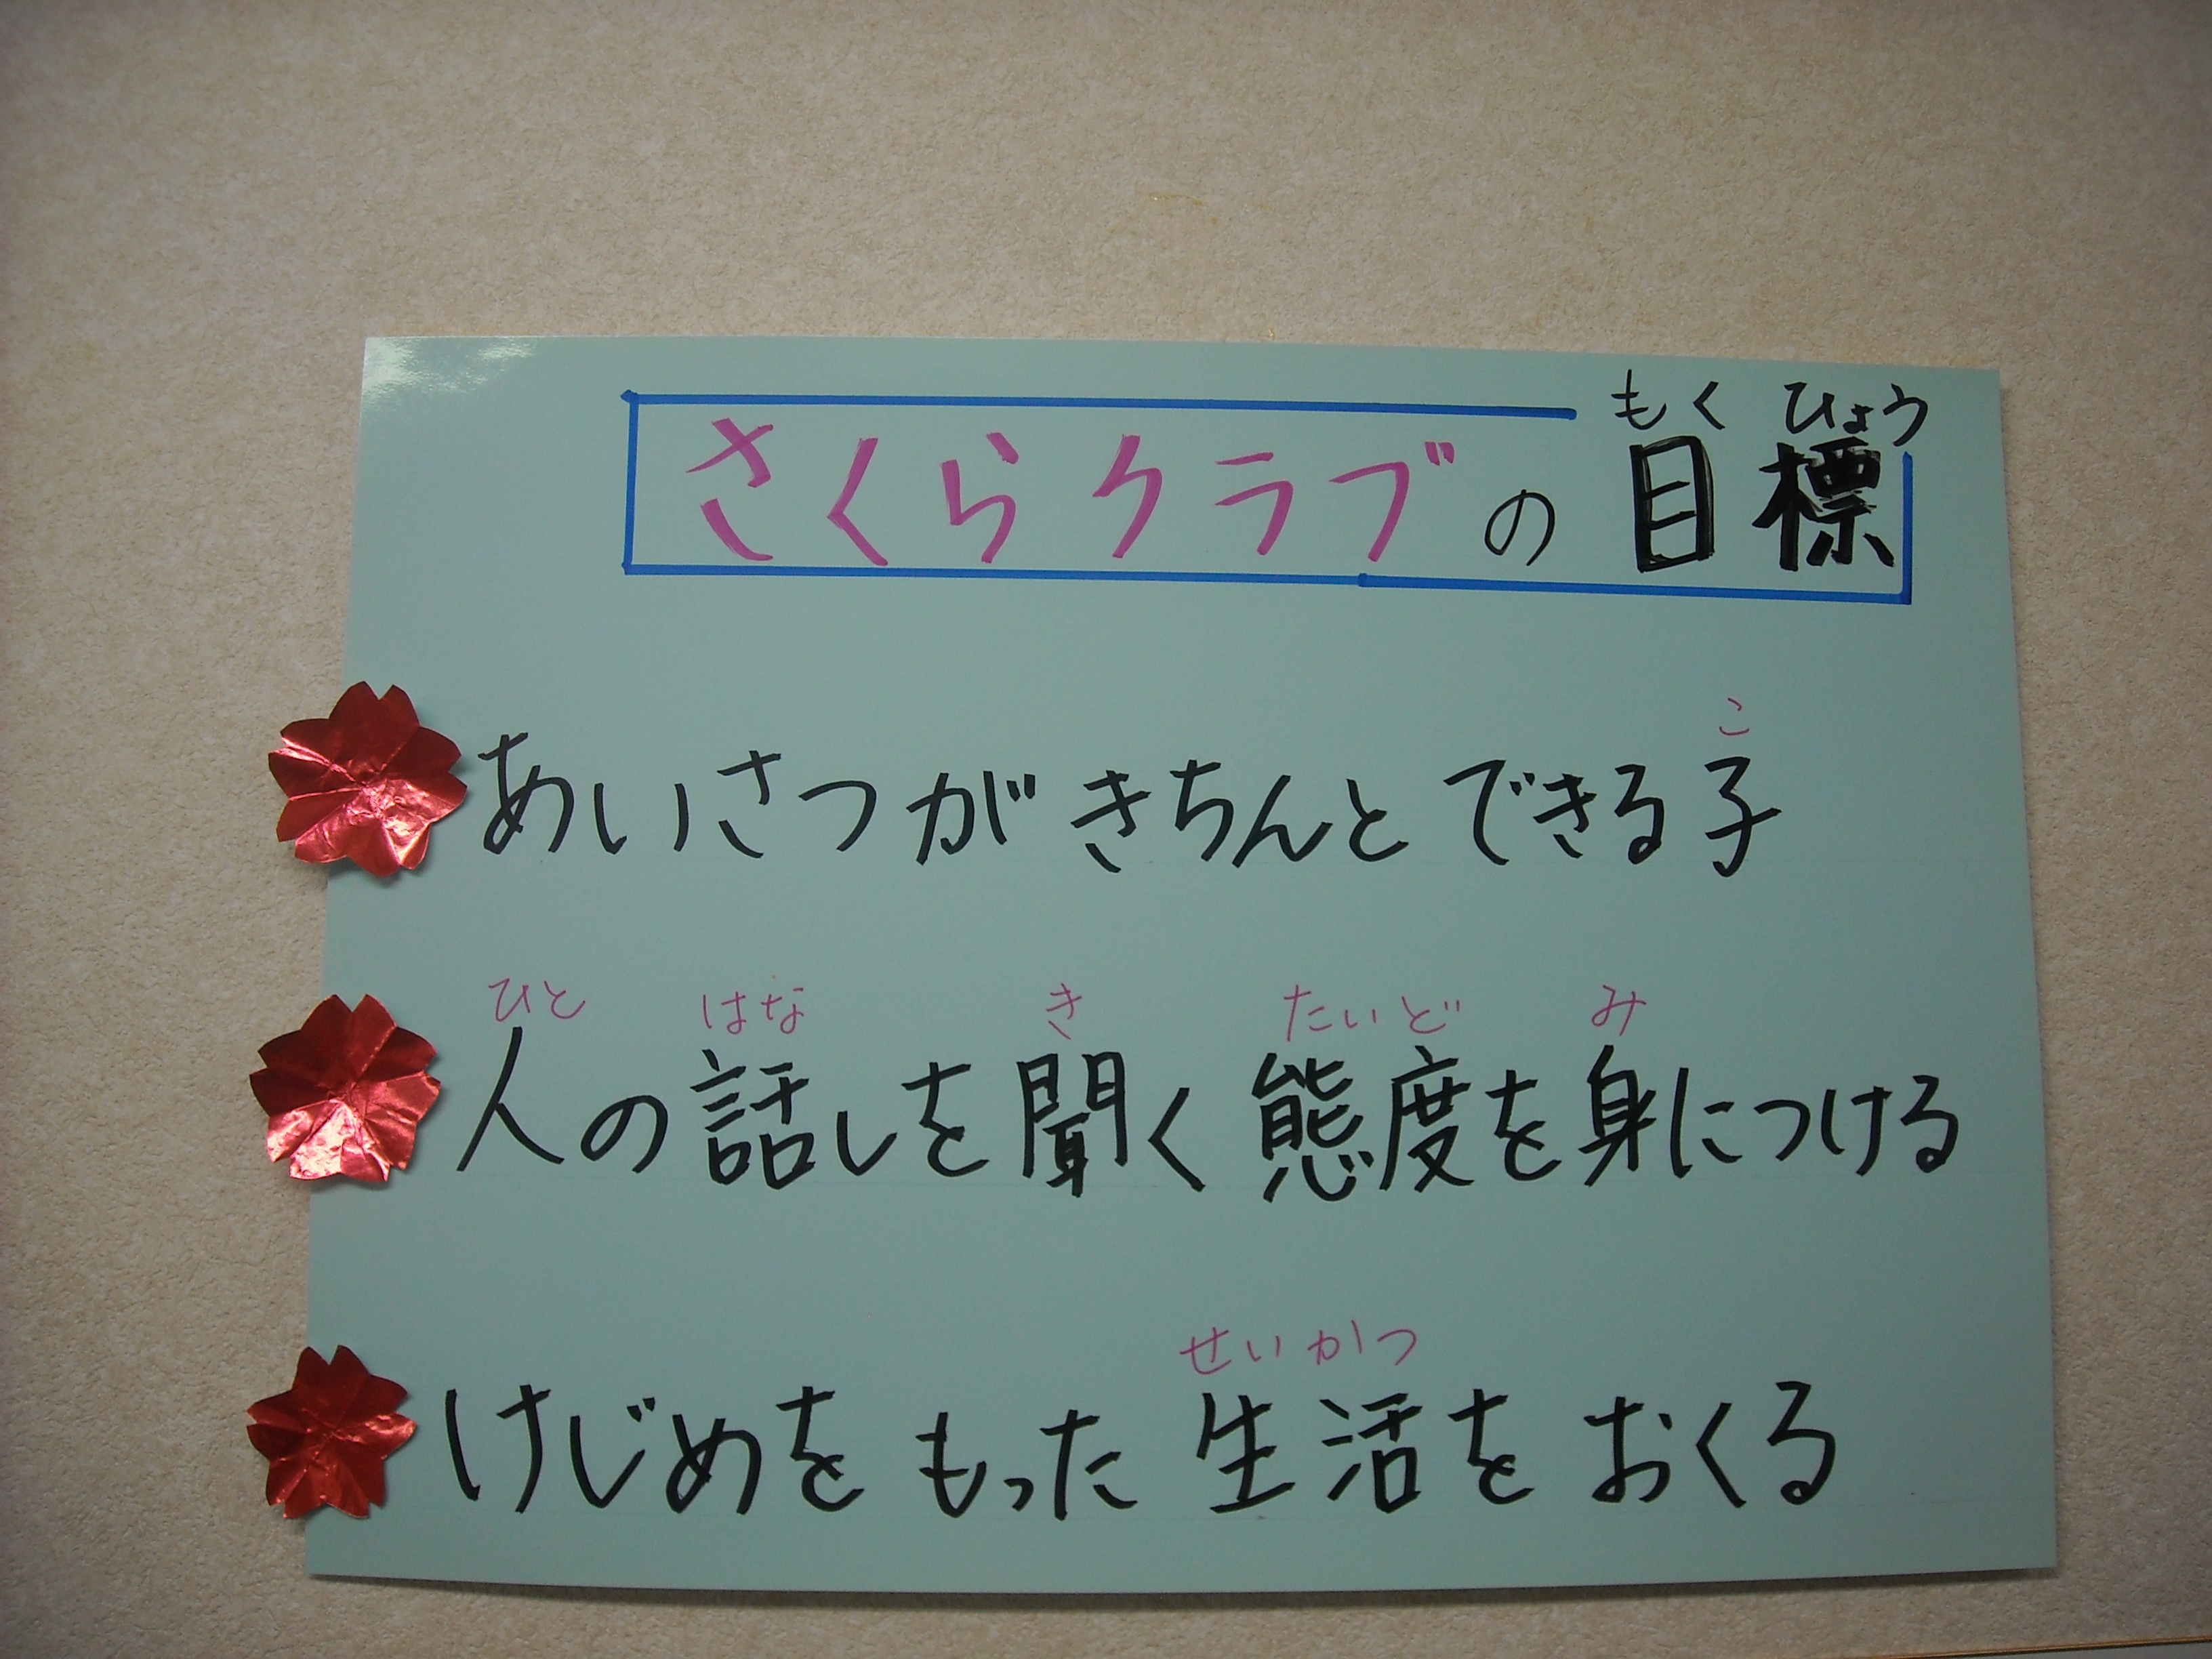 もく ひょう
さくらクラブの目標
こ
あいさつがきちんとできる子
ひと はな き たいど み
人の話しを聞く態度を身につける
せいかつ
けじめをもった生活をおくる